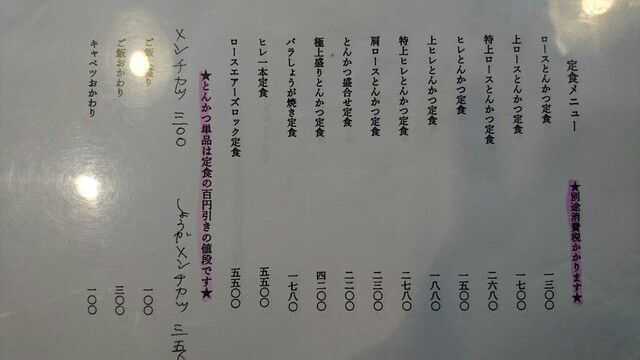 定食メニュー ★別途消費税かかります★
ロースとんかつ定食 一三〇〇
上ロースとんかつ定食 一七〇〇
特上ロースとんかつ定食 二六八〇
ヒレとんかつ定食 一五〇〇
上ヒレとんかつ定食 一八八〇
特上ヒレとんかつ定食 二七八〇
肩ロースとんかつ定食 二三〇〇
とんかつ盛合せ定食 二二〇〇
極上盛りとんかつ定食 四二〇〇
バラしょうが焼き定食 一七八〇
ヒレ一本定食 五五〇〇
ロースエアーズロック定食 五五〇〇
★とんかつ単品は定食の百円引きの値段です★
メンチカツ 三一〇〇 しょうがメンチカツ 三五
ご飯大盛り 一〇〇
ご飯おかわり 三〇〇
キャベツおかわり 一〇〇